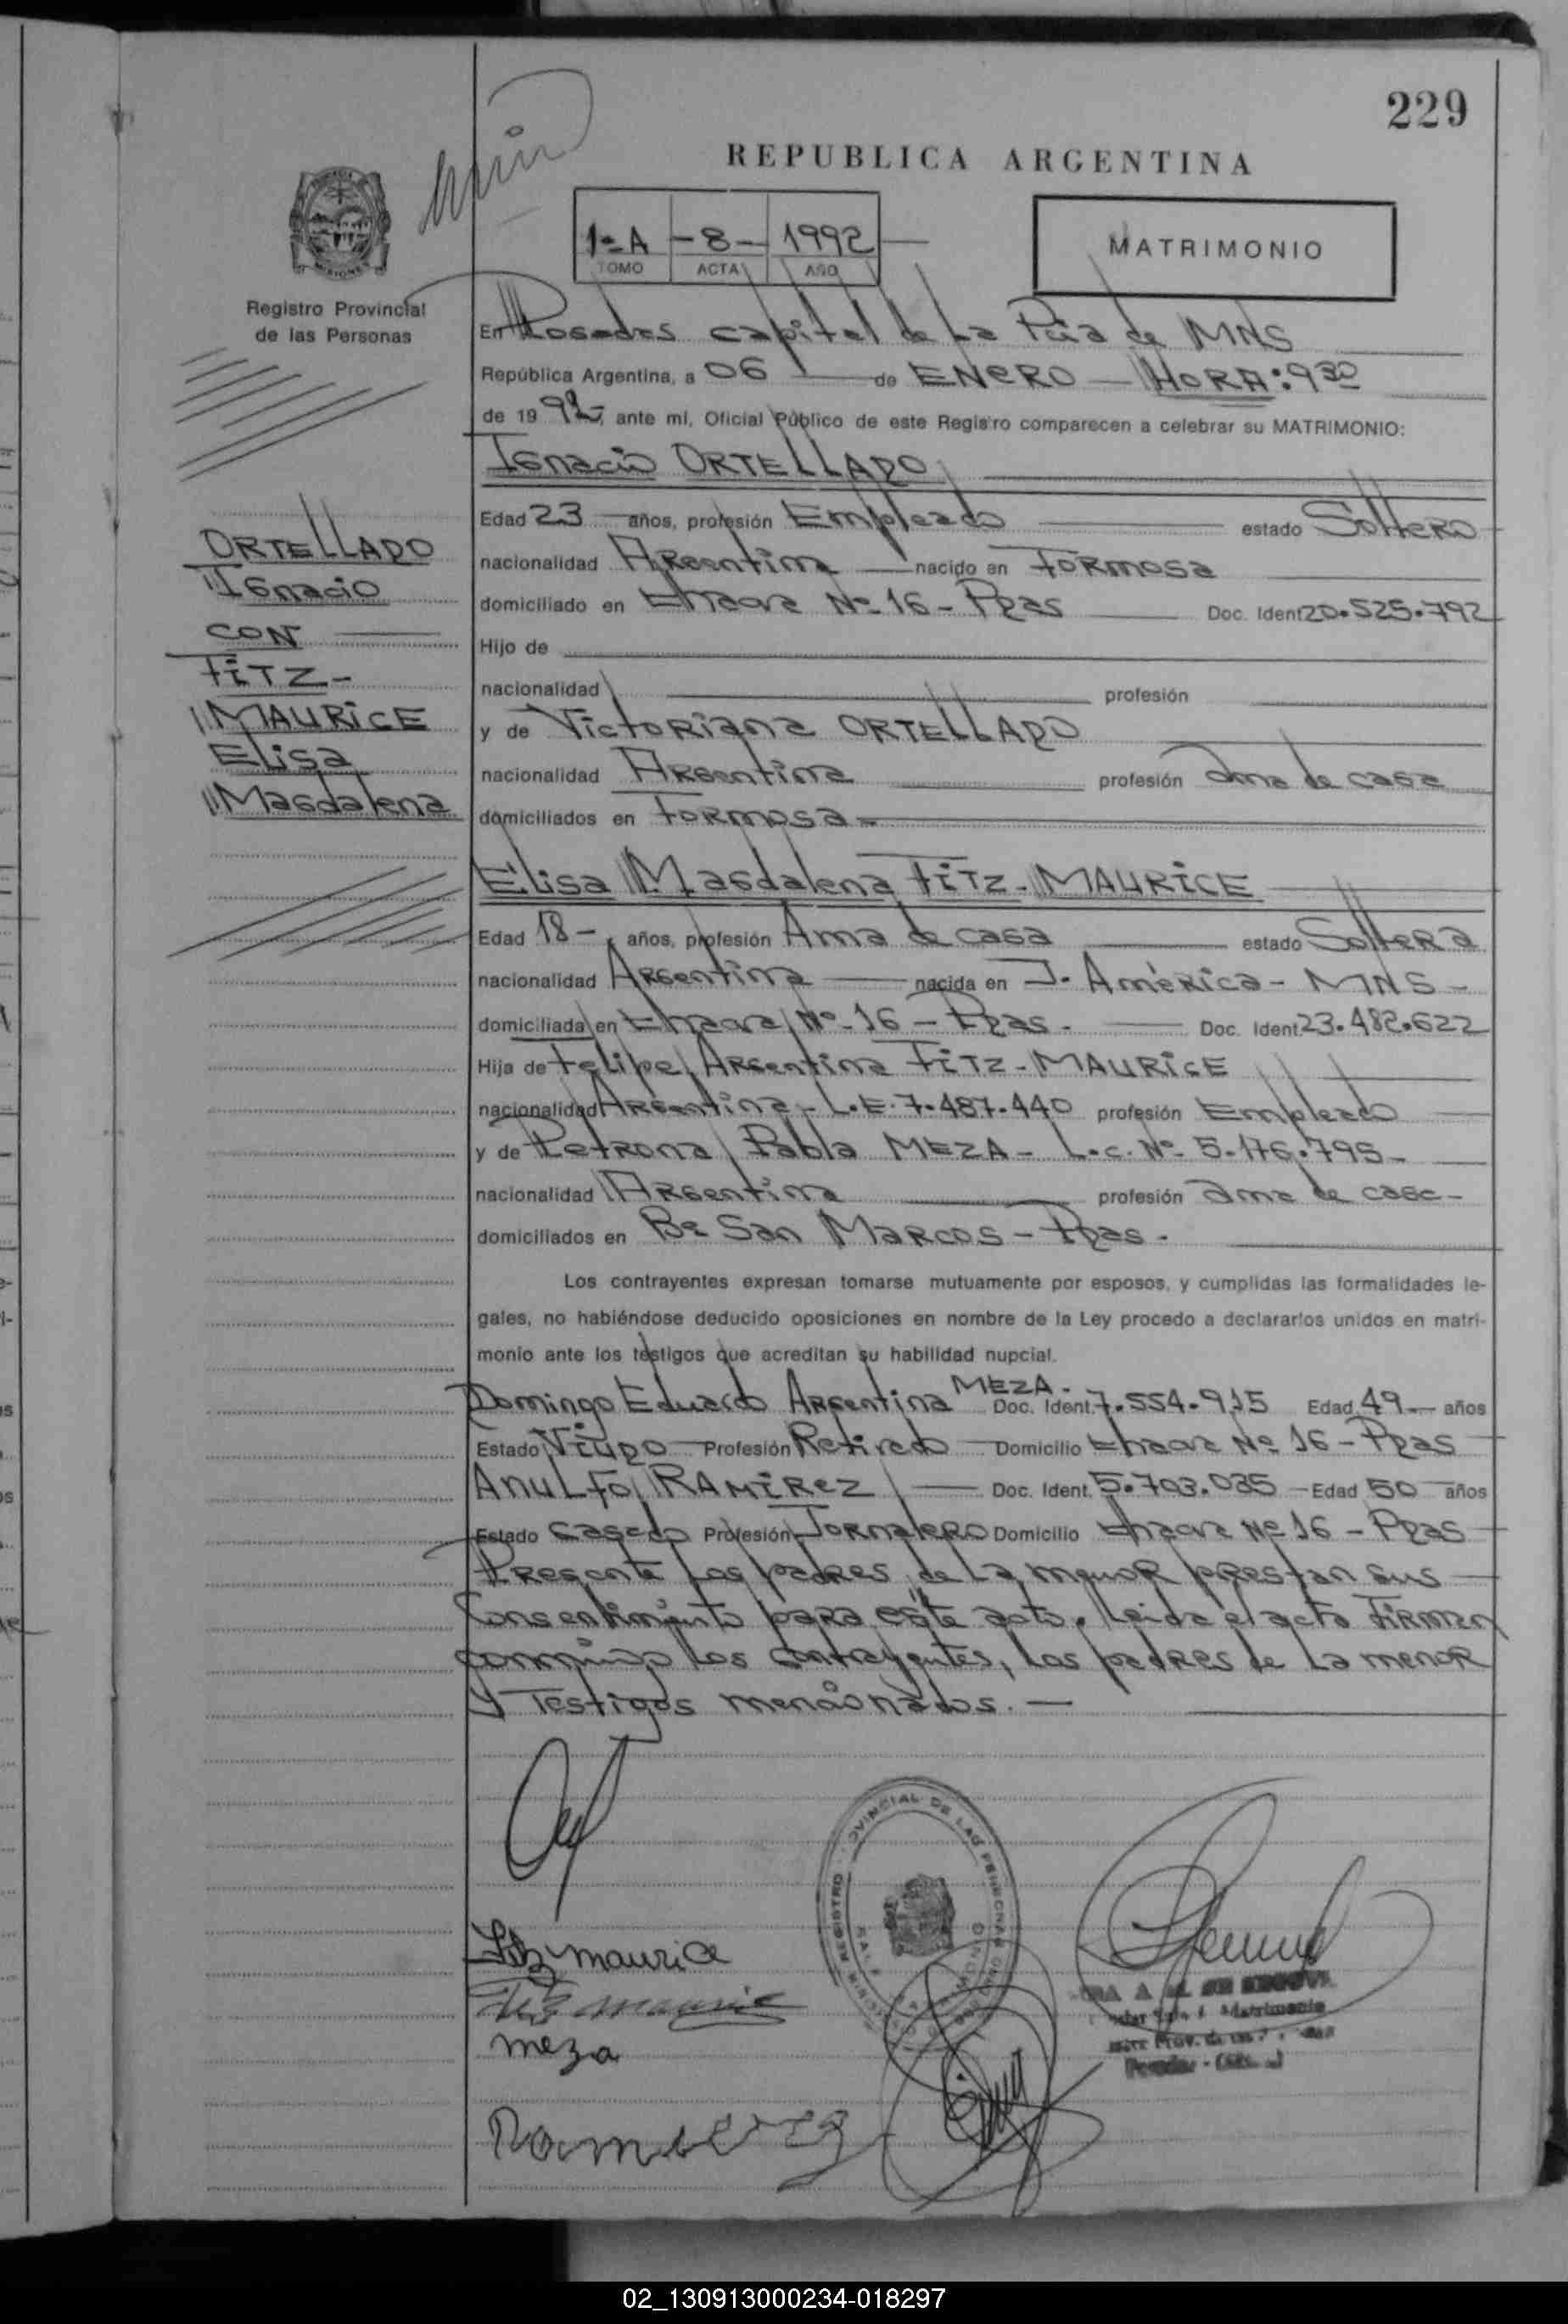 229
REPUBLICA ARGENTINA
1=A -8- 1992
TOMO ACTA AÑO
MATRIMONIO
Registro Provincial
de las Personas
En Posadas capital de La Pcia de MNS
República Argentina, a 06 de ENERO HORA: 9 30
de 19 92-, ante mí, Oficial Público de este Registro comparecen a celebrar su MATRIMONIO:
Ignacio ORTELLADO
Edad 23 años, profesión Empleado estado Soltero
nacionalidad Argentina nacido en Formosa
domiciliado en Chacra Nº 16 - Pdas Doc. Ident 20.525.792
Hijo de
nacionalidad profesión
y de Victoriana ORTELLADO
nacionalidad Argentina profesión ama de casa
domiciliados en Formosa-
ORTELLADO
Ignacio
CON
FITZ-
MAURICE
Elisa
Magdalena
Elisa Magdalena FITZ-MAURICE
Edad 18- años, profesión Ama de casa estado Soltera
nacionalidad Argentina nacida en J. América - MNS -
domiciliada en Chacra Nº 16 - Pdas. Doc. Ident. 23.482.622
Hija de Felipe Argentina FITZ-MAURICE
nacionalidad Argentina - L.E. 7.487.440 profesión Empleado
y de Petrona Pabla MEZA - L.C. Nº 5.176.795-
nacionalidad Argentina profesión ama de casa-
domiciliados en Bº San Marcos - Pdas.
Los contrayentes expresan tomarse mutuamente por esposos, y cumplidas las formalidades le-
gales, no habiéndose deducido oposiciones en nombre de la Ley procedo a declararlos unidos en matri-
monio ante los testigos que acreditan su habilidad nupcial.
Domingo Eduardo Argentina MEZA. Doc. Ident. 7.554.915 Edad 49 años
Estado Viudo Profesión Retirado Domicilio Chacra Nº 16 - Pdas
ANULFO RAMIREZ Doc. Ident. 5.703.035 Edad 50 años
Estado Casado Profesión Jornalero Domicilio Chacra Nº 16 - Pdas
Presente los padres de la menor prestan sus
Consentimiento para este acto. Leida el acta firman
conmigo los contrayentes, los padres de la menor
y Testigos mencionados.
Fitz maurice
Fitz maurice
meza
Ramirez
02_130913000234-018297